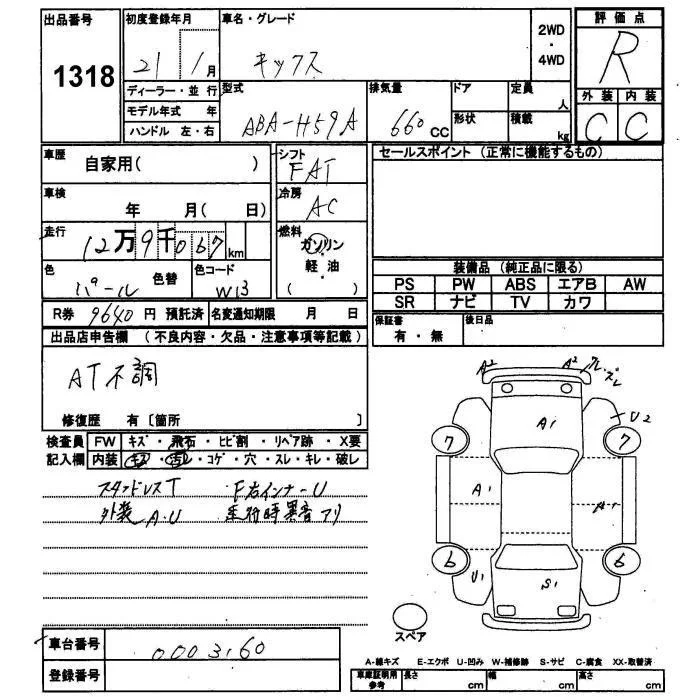 出品番号 初度登録年月 車名・グレード 2WD・4WD 評価点
1318 21 1月 キックス R
ディーラー・並行 型式 排気量 ドア 定員 人 外装 内装
モデル年式 年 ABA-H59A 660cc 形状 積載 kg C C
ハンドル 左・右
車歴 自家用( ) シフト FAT セールスポイント (正常に機能するもの)
車検 年 月( 日) 冷房 AC
走行 12万9千067km 燃料 ガソリン
軽油
( )
色 パール 色替 色コード W13
装備品 (純正品に限る)
PS PW ABS エアB AW
SR ナビ TV カワ
R券 9640円 預託済 名変通知期限 月 日
保証書 有・無 後日品
出品店申告欄 (不良内容・欠品・注意事項等記載)
AT不調
修復歴 有 [箇所 ]
検査員 FW キズ・飛石・ヒビ割・リペア跡・X要
記入欄 内装 キズ・汚レ・コゲ・穴・スレ・キレ・破レ
スタッドレスT F右インナーU
外装A.U 走行時異音アリ
A2 A2 グレ.ズレ
A1 U2
7 7
A1 A-1
6 6
U1 S1
スペア
車台番号 0003160
登録番号
A-線キズ E-エクボ U-凹み W-補修跡 S-サビ C-腐食 XX-取替済
車庫証明用参考 長さ cm 幅 cm 高さ cm